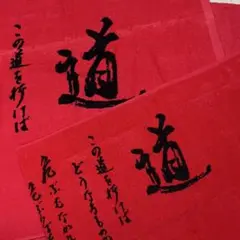 道
この道を行けば
道
この道を行けば
どうなるものか
危ぶむなかれ